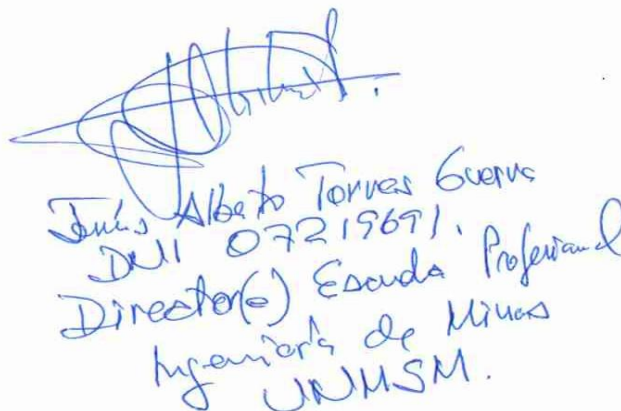 Alberto Torres Guerra
DNI 07219691.
Director(e) Escuela Profesional
Ingeniería de Minas
UNMSM.